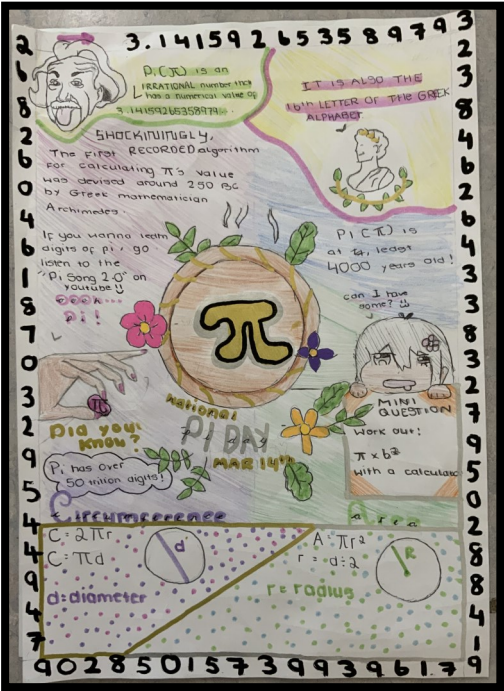 3.14159265358979
Pi (π) is an
IRRATIONAL number that
has a numerical value of
3.14159265358979...
IT IS ALSO THE
16th LETTER OF THE GREEK
ALPHABET
SHOCKININGLY,
The first RECORDED algorithm
for calculating π's value
was devised around 250 BC
by Greek mathematician
Archimedes.
If you wanna learn
digits of pi, go
listen to the
"Pi Song 2.0" on
youtube!!
Pi!
Pi (π) is
at least
4000 years old!
can I have
some?
π
π
National
Pi DAY
MAR 14th
Did you
know?
Pi has over
50 trillion digits!
MINI
QUESTION
Work out:
π x b²
with a calculator
Circumference
C = 2πr
C = πd
d
d = diameter
Area
A = πr²
r = d÷2
R
r = radius
902850157399396179